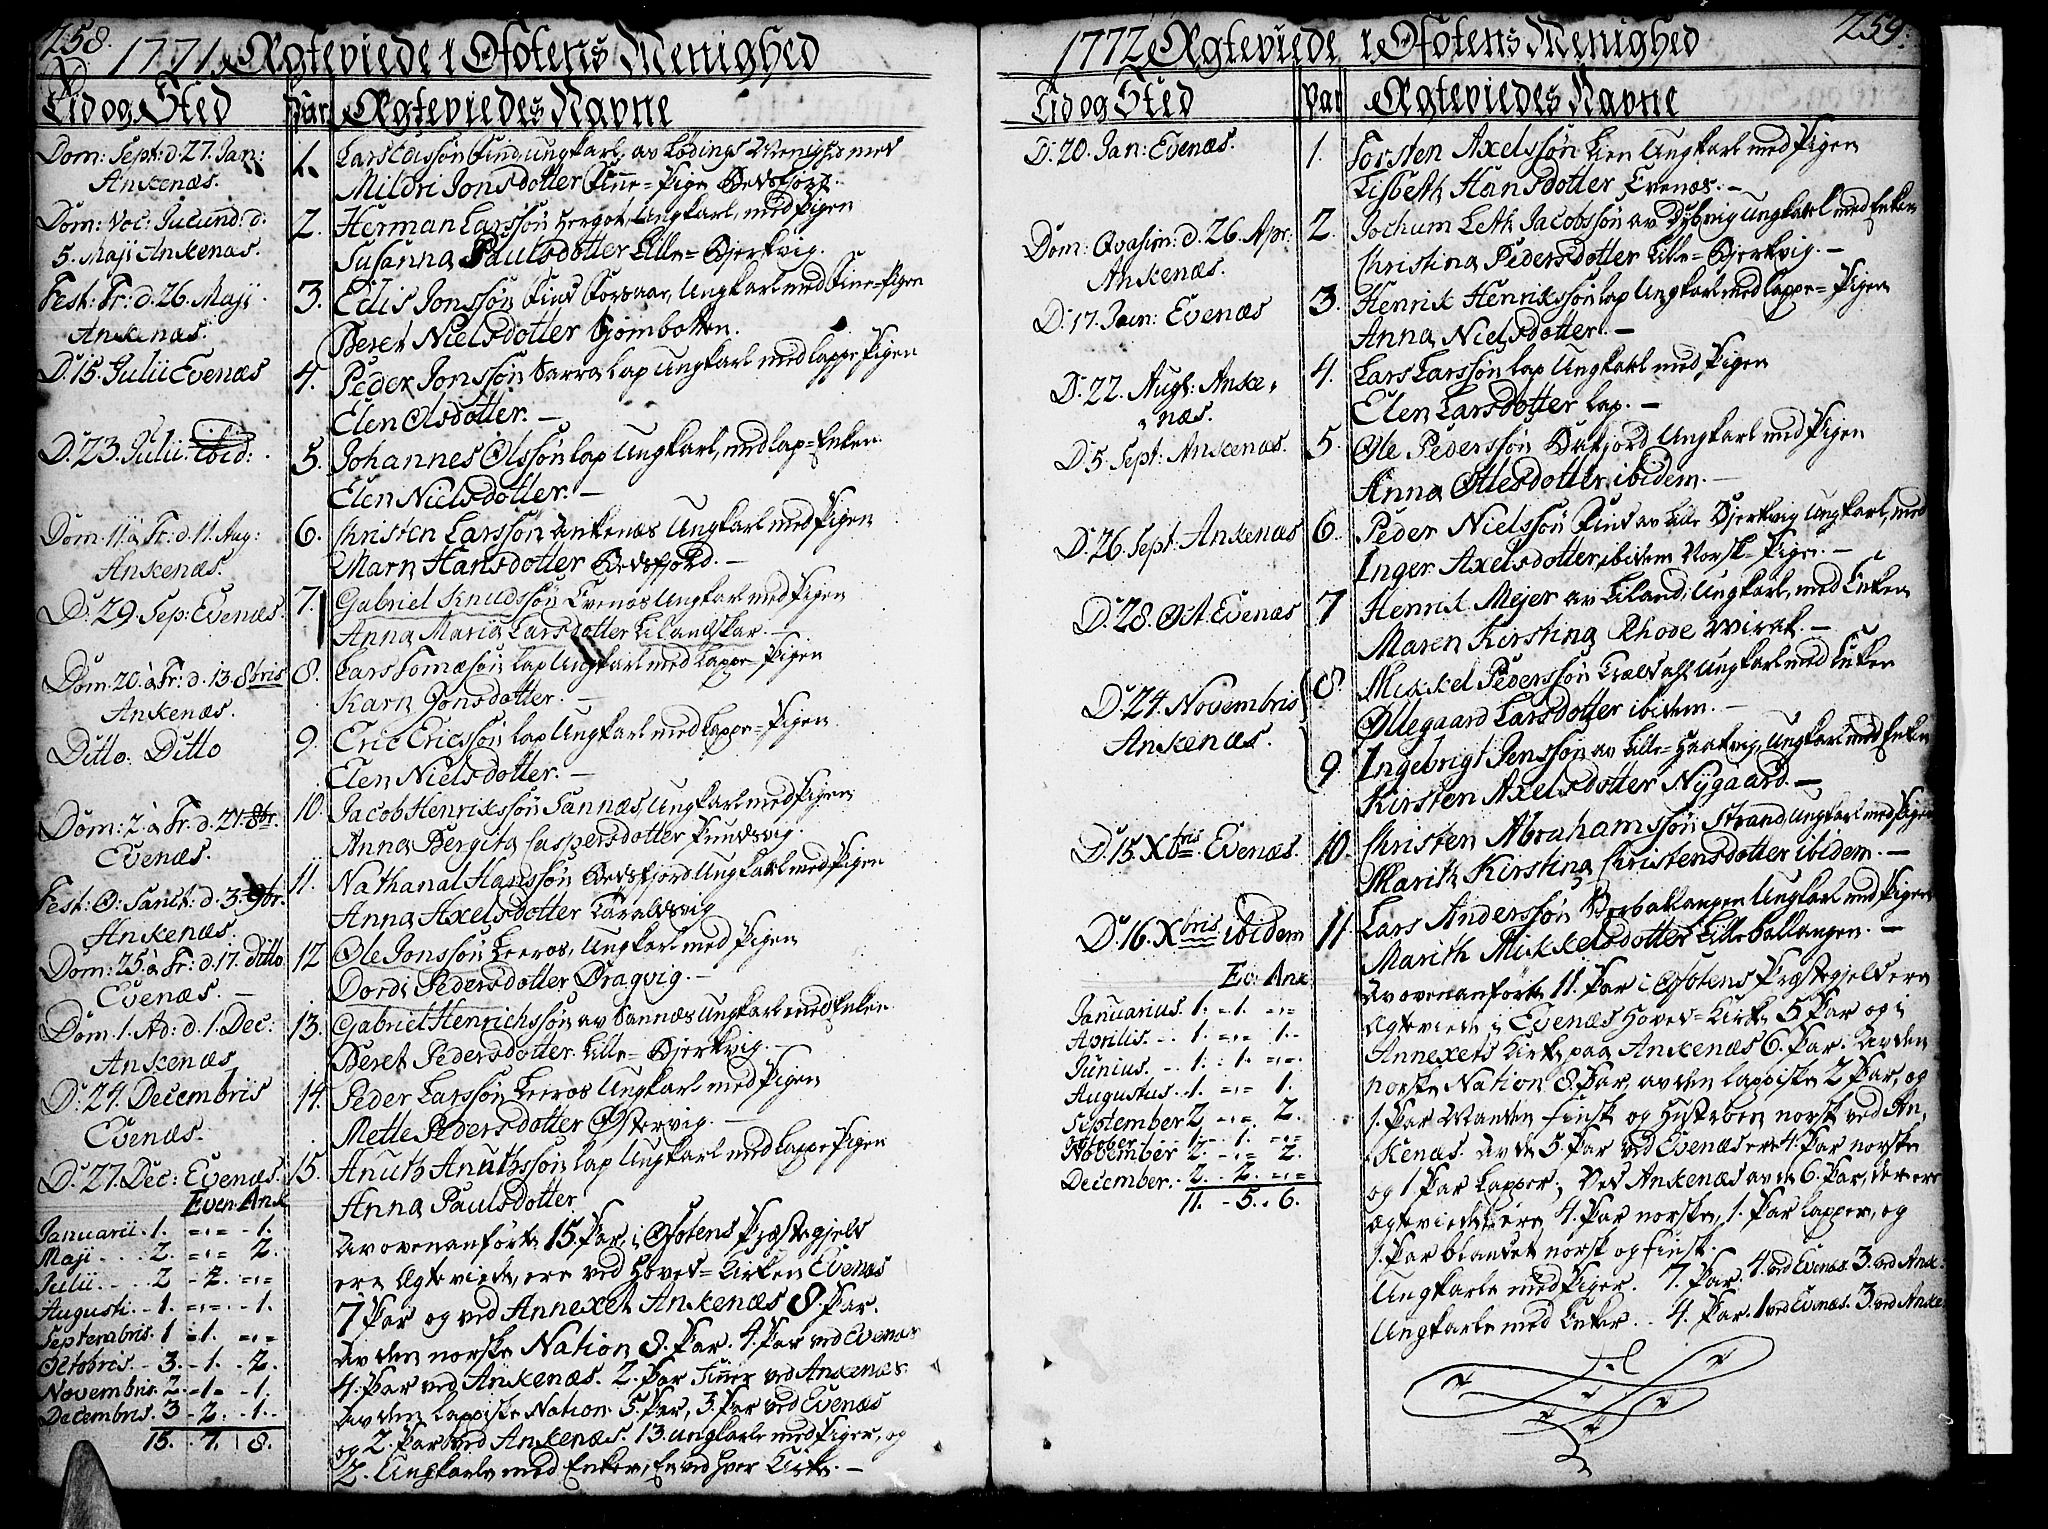 258.
1771 Ægteviede i Ofotens Menighed
Tid og Sted Par Ægteviedes Navne
Dom: Sept: d. 27. Jan: 1. Lars Edissøn Find ungkarl, av Lødings Menighed med
Ankenæs. Mildri Jonsdotter Finne-Pige Bedsfjord.
Dom: Voc: Jucund: d: 2. Herman Larssøn Herget, Ungkarl, med Pigen
5. Maji Ankenæs. Susanna Paulsdotter Lille-Bjerkvig.
Fest: Tr: d. 26. Maji 3. Edis Jonssøn Find Forsaa, Ungkarl med Fine-Pigen
Ankenæs. Beret Nielsdotter Sjømbotten.
D. 15. Julii Evenæs 4. Peder Jonssøn Sarra lap Ungkarl med lappe Pigen
Elen Olsdotter. -
D. 23. Julii. ibid: 5. Johannes Olssøn lap Ungkarl, med lap-Enken
Elen Nielsdotter. -
Dom: 11 à Tr: d. 11. Aug: 6. Christen Larssøn Ankenæs Ungkarl med Pigen
Ankenæs. Marn Hansdotter Bedsfjord. -
D. 29. Sep: Evenæs. 7. Gabriel Knudssøn Evenæs Ungkarl med Pigen
Anna Maria Larsdotter Lilandskar. -
Dom. 20. à Tr: d. 13. 8bris 8. Lars Tomæsøn lap Ungkarl med lappe Pigen
Ankenæs. Karn Jonsdotter. -
Ditto. Ditto 9. Eric Ericssøn lap Ungkarl med lappe-Pigen
Elen Nielsdotter. -
Dom: 2. à Tr. d. 21. 8br. 10. Jacob Henrikssøn Sannæs, Ungkarl med Pigen
Evenæs. Anna Bergita Caspersdotter Fundsvig.
Fest: O: Sanct: d. 3. 9br. 11. Nathanal Hanssøn Bedsfjord Ungkarl med Pigen
Ankenæs. Anna Axelsdotter Taraldsvig
Dom: 25 à Tr: d. 17. Ditto 12 Ole Jonssøn Leeros, Ungkarl med Pigen
Evenæs. - Dordi Pedersdotter Dragvig. -
Dom. 1. Ad: d. 1. Dec: 13. Gabriel Henrichssøn av Sannæs Ungkarl med Enken
Ankenæs Beret Pedersdotter Lille-Bjerkvig. -
D. 24. Decembriis 14. Peder Larssøn Leeros Ungkarl med Pigen
Evenæs. Mette Pedersdotter Østervig. -
D. 27. Dec: Evenæs. 15. Anuth Anuthssøn lap Ungkarl med lappe Pigen
Anna Paulsdotter
Even. Ank
Januarii. 1. =.= - 1.
Maji. . 2 =.= 2.
Julii. . . 2 - 2. =.=
Augusti. . 1. =.= . 1.
Septembris. 1 = 1. =.=
Octobris. . 3. - 1. . 2.
Novembris. 2. - 1 - 1.
Decembris. 3 - 2. . 1. .
15. 7. 8.
Av ovenanførte 15. Par, i Ofotens Præstegjeld
ere Ægteviede, ere ved Hoved-Kirken Evenæs
7 Par og ved Annexet Ankenæs 8. Par.
Av den norske Nation 8. Par. 4. Par ved Evenæs
4. Par ved Ankenæs. 2. Par Finner ved Ankenæs.
Av den lappiske Nation 5. Par, 3. Par ved Evenæs
og 2. Par ved Ankenæs. 13. ungkarle med Piger, og
2. Ungkarle med Enker, En ved hver Kirke. -
259.
1772 Ægteviede i Ofotens Menighed
Tid og Sted Par Ægteviedes Navne
D. 20. Jan: Evenæs. 1. Torsten Axelssøn Lien Ungkarl med Pigen
Lisbeth Hansdotter Evenæs. -
Dom: Qvasim: d. 26. Apr: 2. Jochum Leth Jacobssøn av Dybvig Ungkarl med Enken
Ankenæs. Christina Pedersdotter Lille-Bjerkvig. -
D. 17. Jun: Evenæs 3. Henrik Henrikssøn lap Ungkarl med lappe-Pigen
Anna Nielsdotter. -
D. 22. Augt: Anke= 4. Lars Larssøn lap Ungkarl med Pigen
=næs. Elen Larsdotter lap. -
D. 5. Sept: Ankenæs. 5. Ole Pederssøn Bakjord Ungkarl med Pigen
Anna Ottesdotter ibidem. -
D. 26. Sept: Ankenæs 6. Peder Nielssøn Find av Lille Bjerkvig Ungkarl, med
Inger Axelsdotter, ibidem Norsk-Pige. -
D. 28. Oct. Evenæs 7 Henrik Mejer av Liland, Ungkarl, med Enken
Maren Kirstina Rhode
D. 24. Novembris 8. Mikkel Pederssøn Ungkarl med Enken
Ollegaard Larsdotter ibidem. -
Ankenæs. 9. Ingebrigt Jenssøn av Lille-Haakvig, Ungkarl med Enken
Kirsten Axelsdotter Nygaard. -
D. 15. Xbris. Evenæs. 10. Christen Abrahamssøn Strand Ungkarl med Pigen
Marith Kirstina Christensdotter ibidem. -
D. 16. Xbris ibidem 11. Lars Anderssøn Ungkarl med Pigen
Marith Mikkelsdotter Lilleballangen. -
Ev: Ank
Januarius. 1. - 1. =.=
Aprilis. . . 1. =.= 1.
Junius. . . 1. : 1. =.=
Augustus. 1. =.= 1.
September 2. =.= 2.
October. . 1. - 1. =.=
November 2. - .= 2.
December. . 2. . 2. =.=
11. - 5. . 6.
Av ovenanførte 11. Par i Ofotens Præstegjeld ere
Ægteviede i Evenæs Hoved-Kirke 5 Par og i
Annexets Kirke paa Ankenæs 6. Par. Av den
norske Nation 8. Par, av den lappiske 2 Par, og
1. Par Manden finsk og Hustroen norsk ved An,
kenæs. Av de 5. Par ved Evenæs ere 4. Par norske
og 1 Par Lapper; Ved Ankenæs av de 6. Par, der ere
Ægteviede ere 4. Par norske, 1. Par Lapper, og
1. Par blandet norsk og finsk.
Ungkarle med Piger. 7. Par. 4. ved Evenæs 3. ved Anke:
Ungkarle med Enker. . 4. Par. 1 ved Evenæs. 3. ved Anke